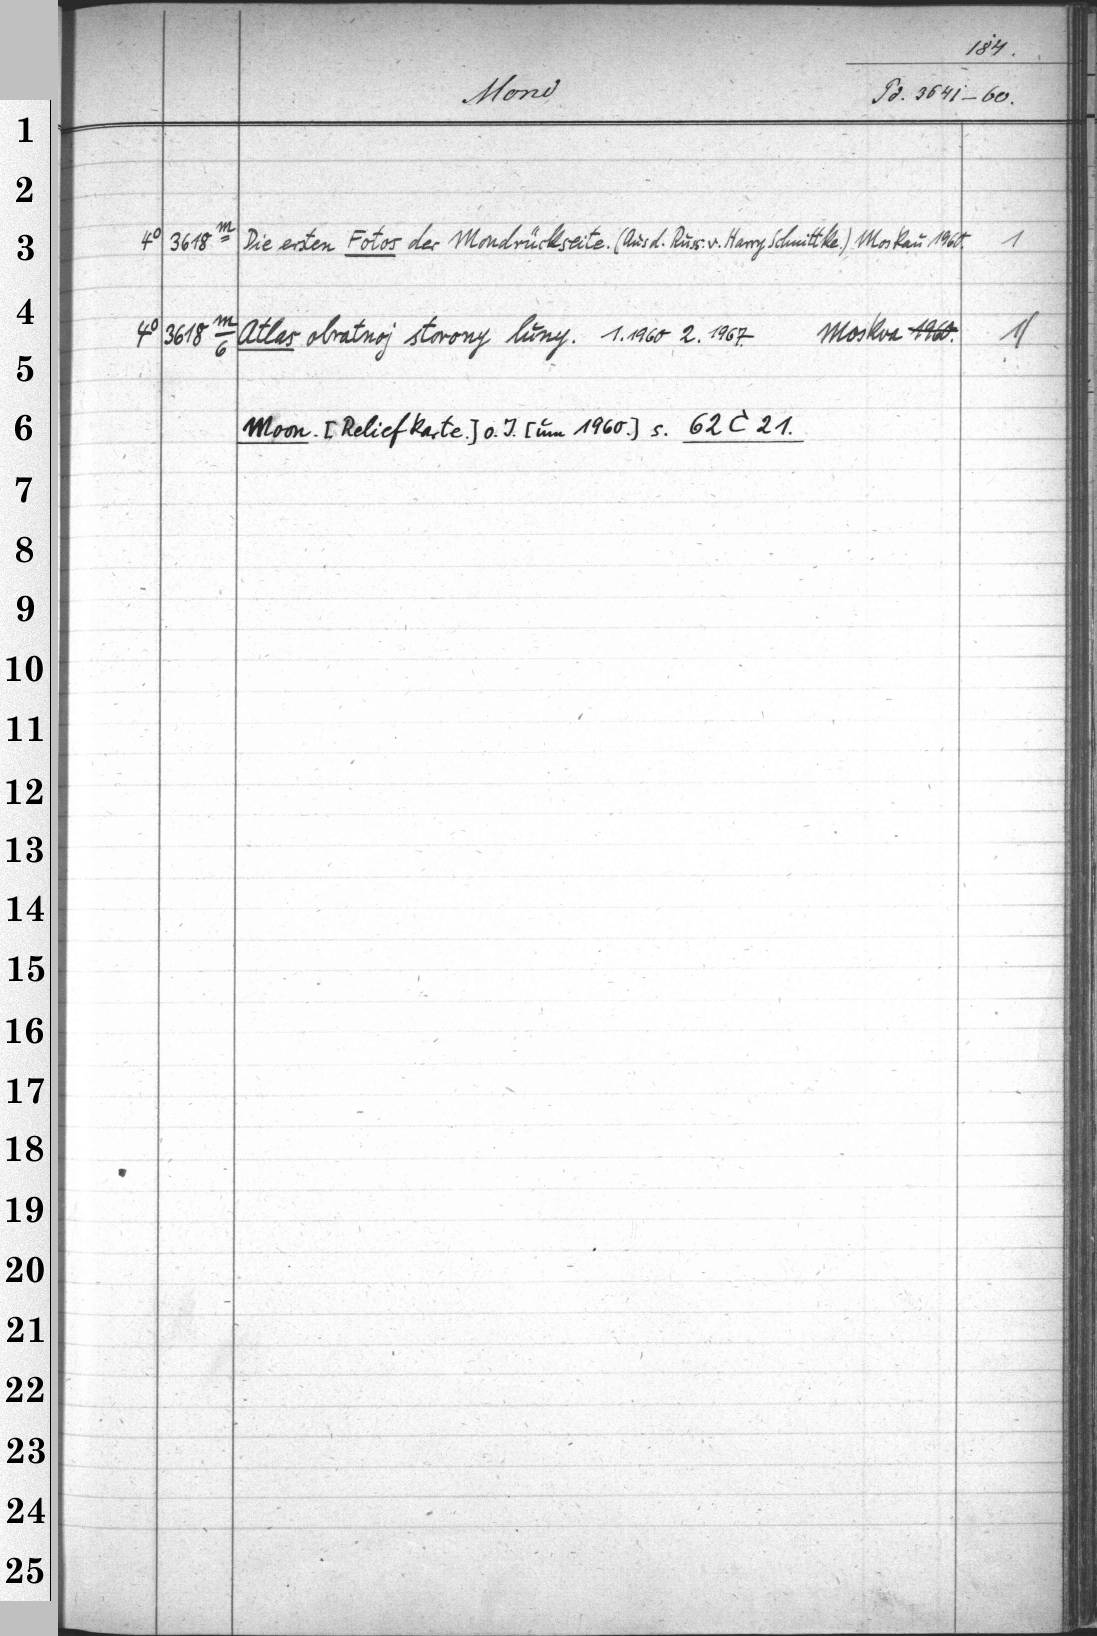 184.
Mond
Pd. 3641-60.
4° 3618 m Die ersten Fotos der Mondrückseite. (Aus d. Russ. v. Harry Schnittke.) Moskau 1960. 1
4° 3618 m/6 Atlas obratnoj storony luny. 1. 1960 2. 1967. Moskva 1960. 1
Moon. [Reliefkarte.] o. J. [um 1960.] s. 62 C 21.
1
2
3
4
5
6
7
8
9
10
11
12
13
14
15
16
17
18
19
20
21
22
23
24
25